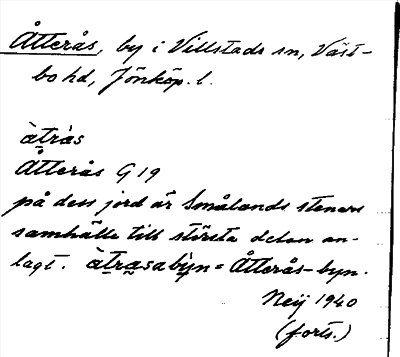 Åtterås, by i Villstads sn, Väst-
bo hd, Jönköp. l.
àtràs
Åtterås G 19
på dess jord är Smålands steners
samhälle till största delen an-
lagt. àtrasabỳn = Åtterås-byn.
Neij 1940
(forts.)